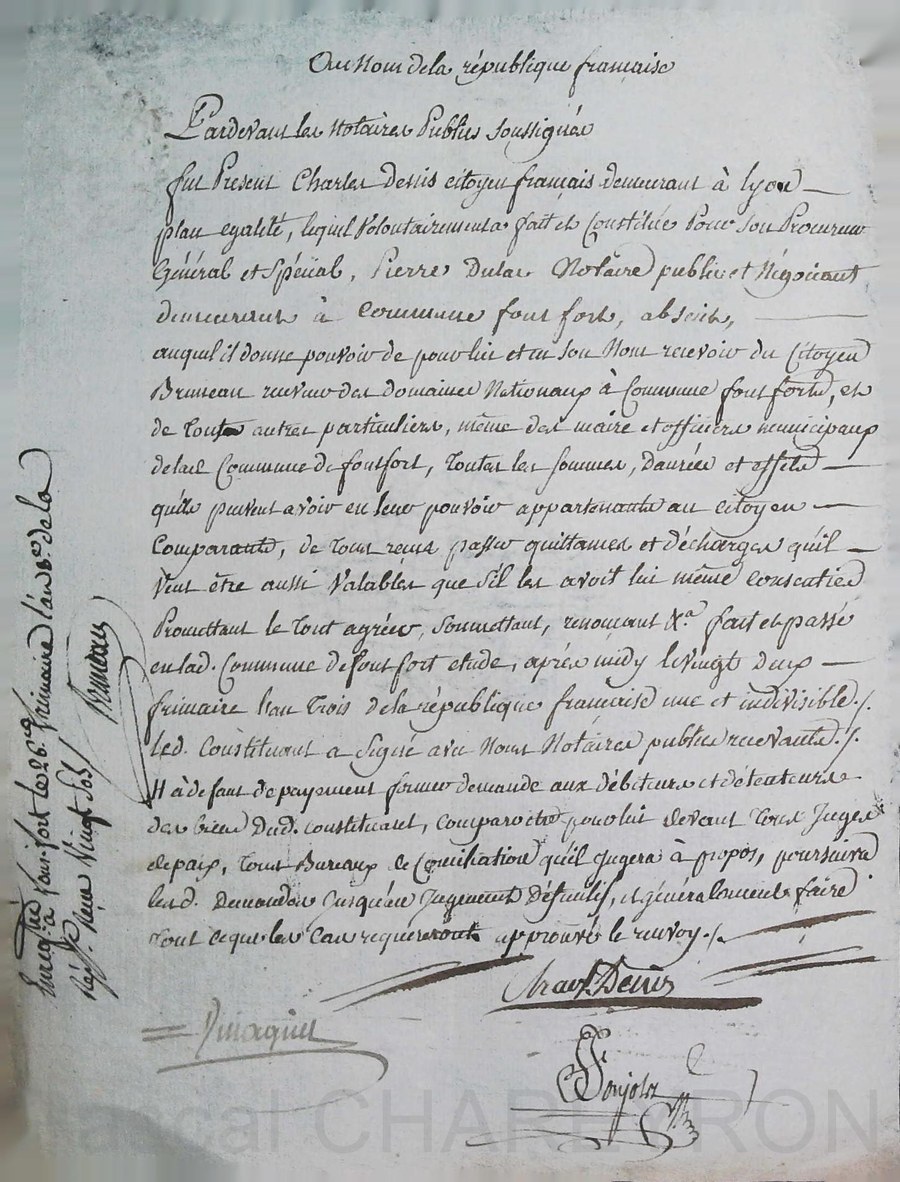 Au Nom dela république française
Pardevant les Notaires Publics soussignés
fut Present Charles Denis citoyen français demeurant à Lyon
place egalité, lequel Volontairement a fait et Constitué Pour son Procureur
Général et Spécial, Pierre Dulac Notaire public et Négociant
demeurant à Commune font fort, absent,
auquel il donne pouvoir de pour lui et en son Nom recevoir du Citoyen
Bruneau receveur des domaines Nationaux à Commune font fort, et
de Tous autres particuliers, même des maire et officiers municipaux
delad. Commune de fontfort, Toutes les sommes, danrées et effets
quils peuvent avoir en leur pouvoir appartenants au citoyen
Comparant, de Tout reçu passer quittances et décharges qu'il
Veut être aussi Valables que s'il les avoit lui même consenties
Promettant le Tout agréer, soumettant, renonçant &a. fait et passé
en lad. Commune de font fort etude, après midy le vingt deux
frimaire l'an Trois de la république française une et indivisible./.
Led. Constituant a Signé avec Nous Notaires publics recevants./.
# à défaut de payement former demande aux débiteurs et détenteurs
des biens Dud. constituant, comparoitre pour lui devant Tous Juges
de paix, Tous Bureaux de Conciliation qu'il jugera à propos, poursuivre
lesd. Demandes jusqu'en jugement Définitif, et généralement faire
Tout ce que les Cas requereront approuvé le renvoy./.
Charl Denis
Ponjolas
Enregtré à font-fort le 26e. frimaire l'an 3e. de la
Rép. Reçu Vingt Sols
Bruneau
Pascal CHARETRON